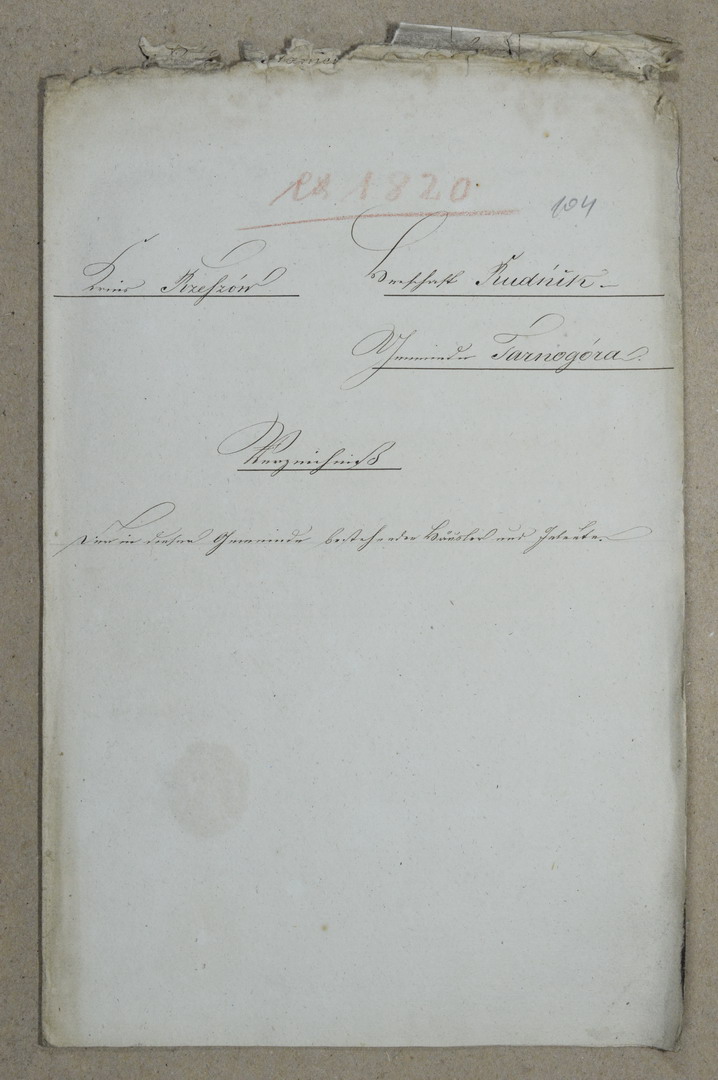 ex 1820
104
Kreis Rzeszów
Herrschaft Rudnik
Gemeinde Tarnogóra.
Verzeichniß
Der in dieser Gemeinde bestehenden Häusler und Inleute.